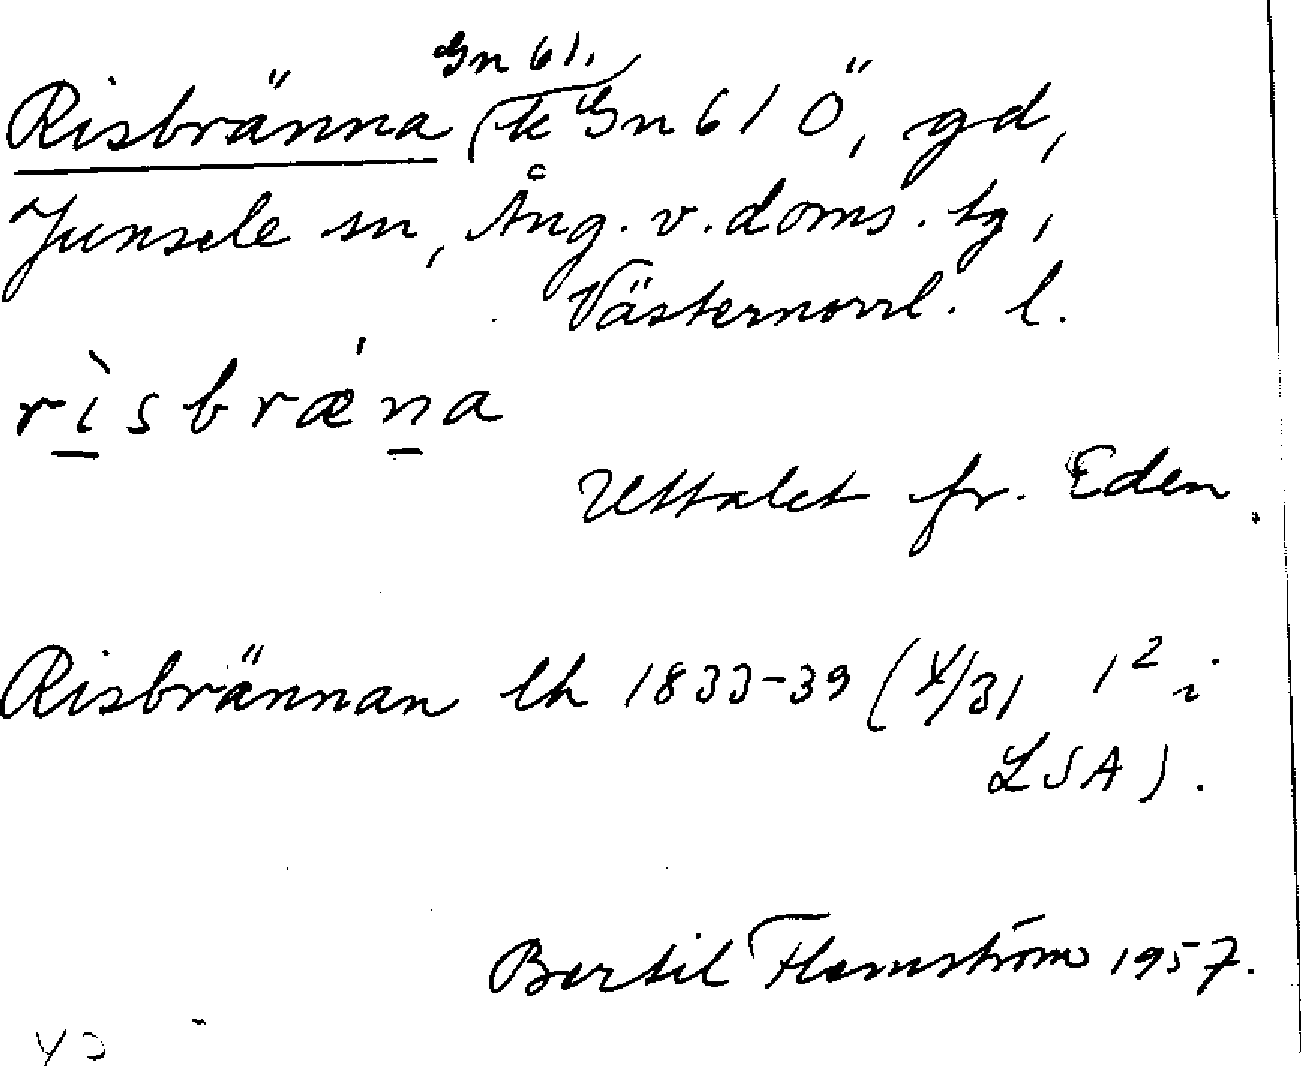 Gn 61.
Risbränna (k Gn 61 Ö, gd,
Junsele sn, Ång. v. doms. tg,
Västernorrl. l.
rìsbrǽna
Uttalet fr. Eden.
Risbrännan lh 1833-39 (Y/31 1² i
LSA).
Bertil Flemström 1957.